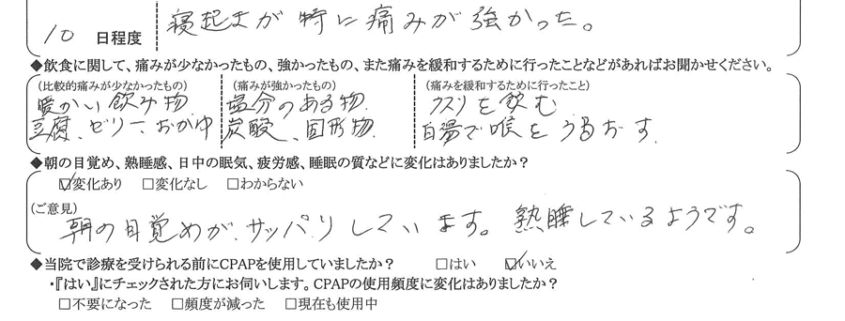 10 日程度 寝起きが特に痛みが強かった。
◆飲食に関して、痛みが少なかったもの、強かったもの、また痛みを緩和するために行ったことなどがあればお聞かせください。
(比較的痛みが少なかったもの) (痛みが強かったもの) (痛みを緩和するために行ったこと)
暖かい飲み物 塩分のある物、 クスリを飲む
豆腐、ゼリー、おかゆ 炭酸、固形物、 白湯で喉をうるおす。
◆朝の目覚め、熟睡感、日中の眠気、疲労感、睡眠の質などに変化はありましたか?
☑変化あり □変化なし □わからない
(ご意見)
朝の目覚めが、サッパリしています。熟睡しているようです。
◆当院で診療を受けられる前にCPAPを使用していましたか? □はい ☑いいえ
・『はい』にチェックされた方にお伺いします。CPAPの使用頻度に変化はありましたか?
□不要になった □頻度が減った □現在も使用中